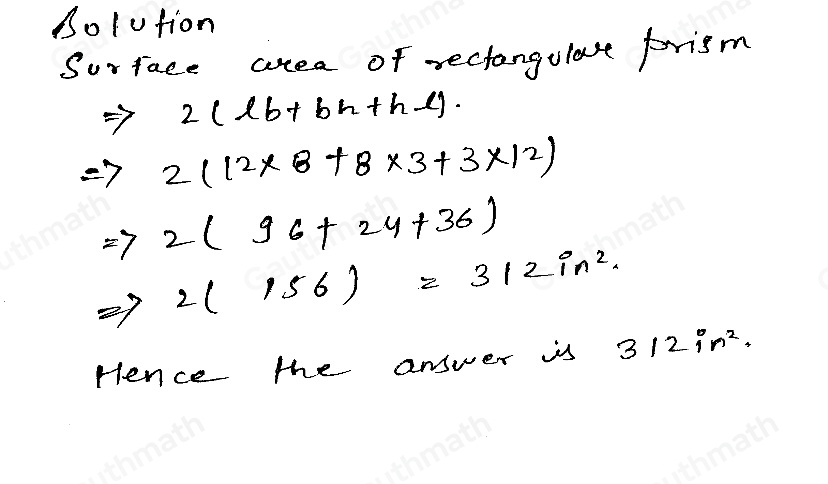 Solution
Surface area of rectangular prism
⇒ 2(lb+bh+hl).
⇒ 2(12×8+8×3+3×12)
⇒ 2(96+24+36)
⇒ 2(156) = 312in².
Hence the answer is 312in².